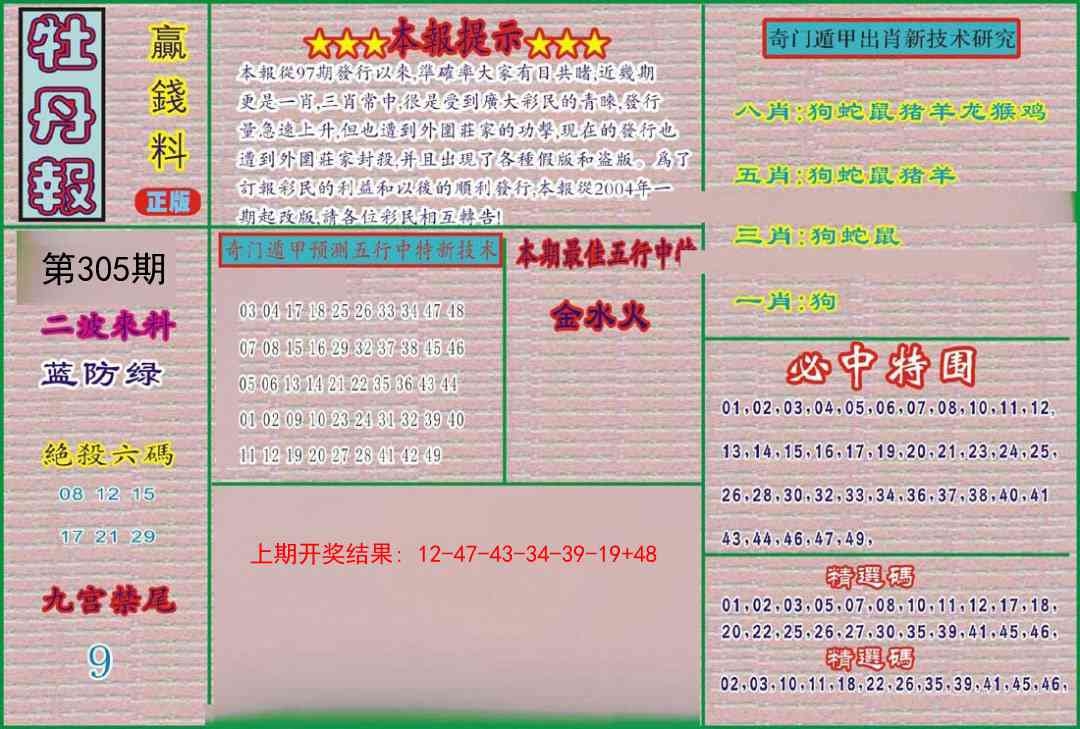 牡丹報
贏錢料
正版
★★★本報提示★★★
本報從97期發行以來,準確率大家有目共睹,近幾期
更是一肖,三肖常中,很是受到廣大彩民的青睞,發行
量急速上升,但也遭到外圍莊家的功擊,現在的發行也
遭到外圍莊家封殺,并且出現了各種假版和盗版。爲了
訂報彩民的利益和以後的順利發行,本報從2004年一
期起改版,請各位彩民相互轉告!
奇门遁甲出肖新技术研究
八肖:狗蛇鼠猪羊龙猴鸡
五肖:狗蛇鼠猪羊
三肖:狗蛇鼠
一肖:狗
第305期
二波來料
蓝防绿
絕殺六碼
08 12 15
17 21 29
九宫禁尾
9
奇门遁甲预测五行中特新技术
03 04 17 18 25 26 33 34 47 48
07 08 15 16 29 32 37 38 45 46
05 06 13 14 21 22 35 36 43 44
01 02 09 10 23 24 31 32 39 40
11 12 19 20 27 28 41 42 49
本期最佳五行中
金水火
上期开奖结果: 12-47-43-34-39-19+48
必中特围
01,02,03,04,05,06,07,08,10,11,12,
13,14,15,16,17,19,20,21,23,24,25,
26,28,30,32,33,34,36,37,38,40,41
43,44,46,47,49,
精選碼
01,02,03,05,07,08,10,11,12,17,18,
20,22,25,26,27,30,35,39,41,45,46,
精選碼
02,03,10,11,18,22,26,35,39,41,45,46,